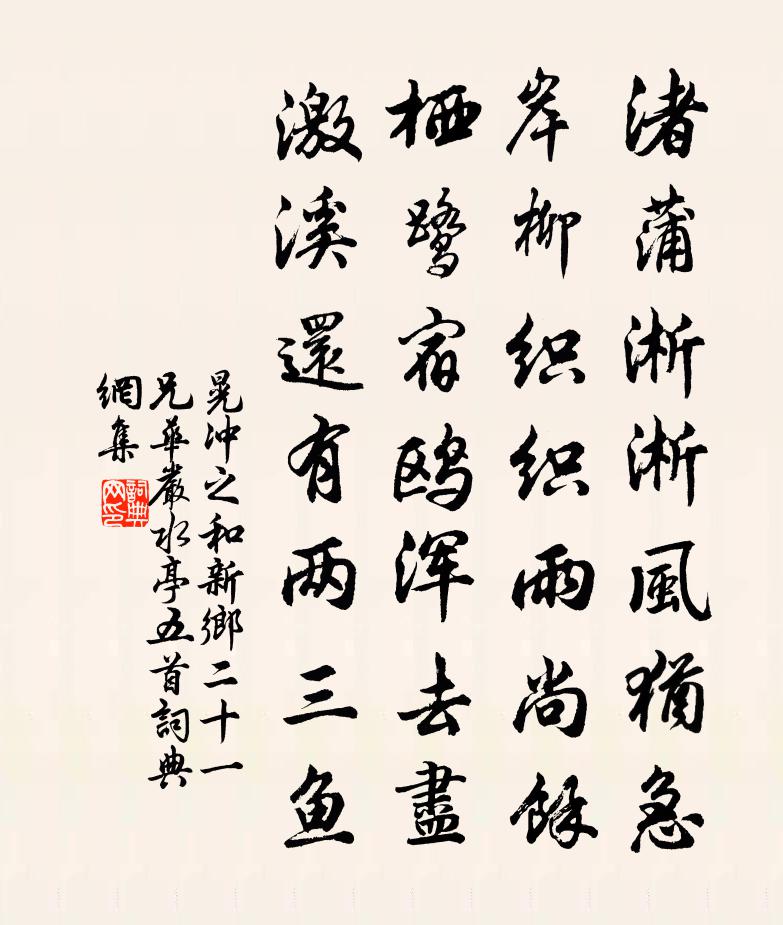 渚蒲淅淅風猶急
岸柳织织雨尚餘
栖鹭宿鸥浑去盡
激溪還有两三鱼
晁冲之和新鄉二十一
兄華嚴水亭五首詞典
網集
詞典網印